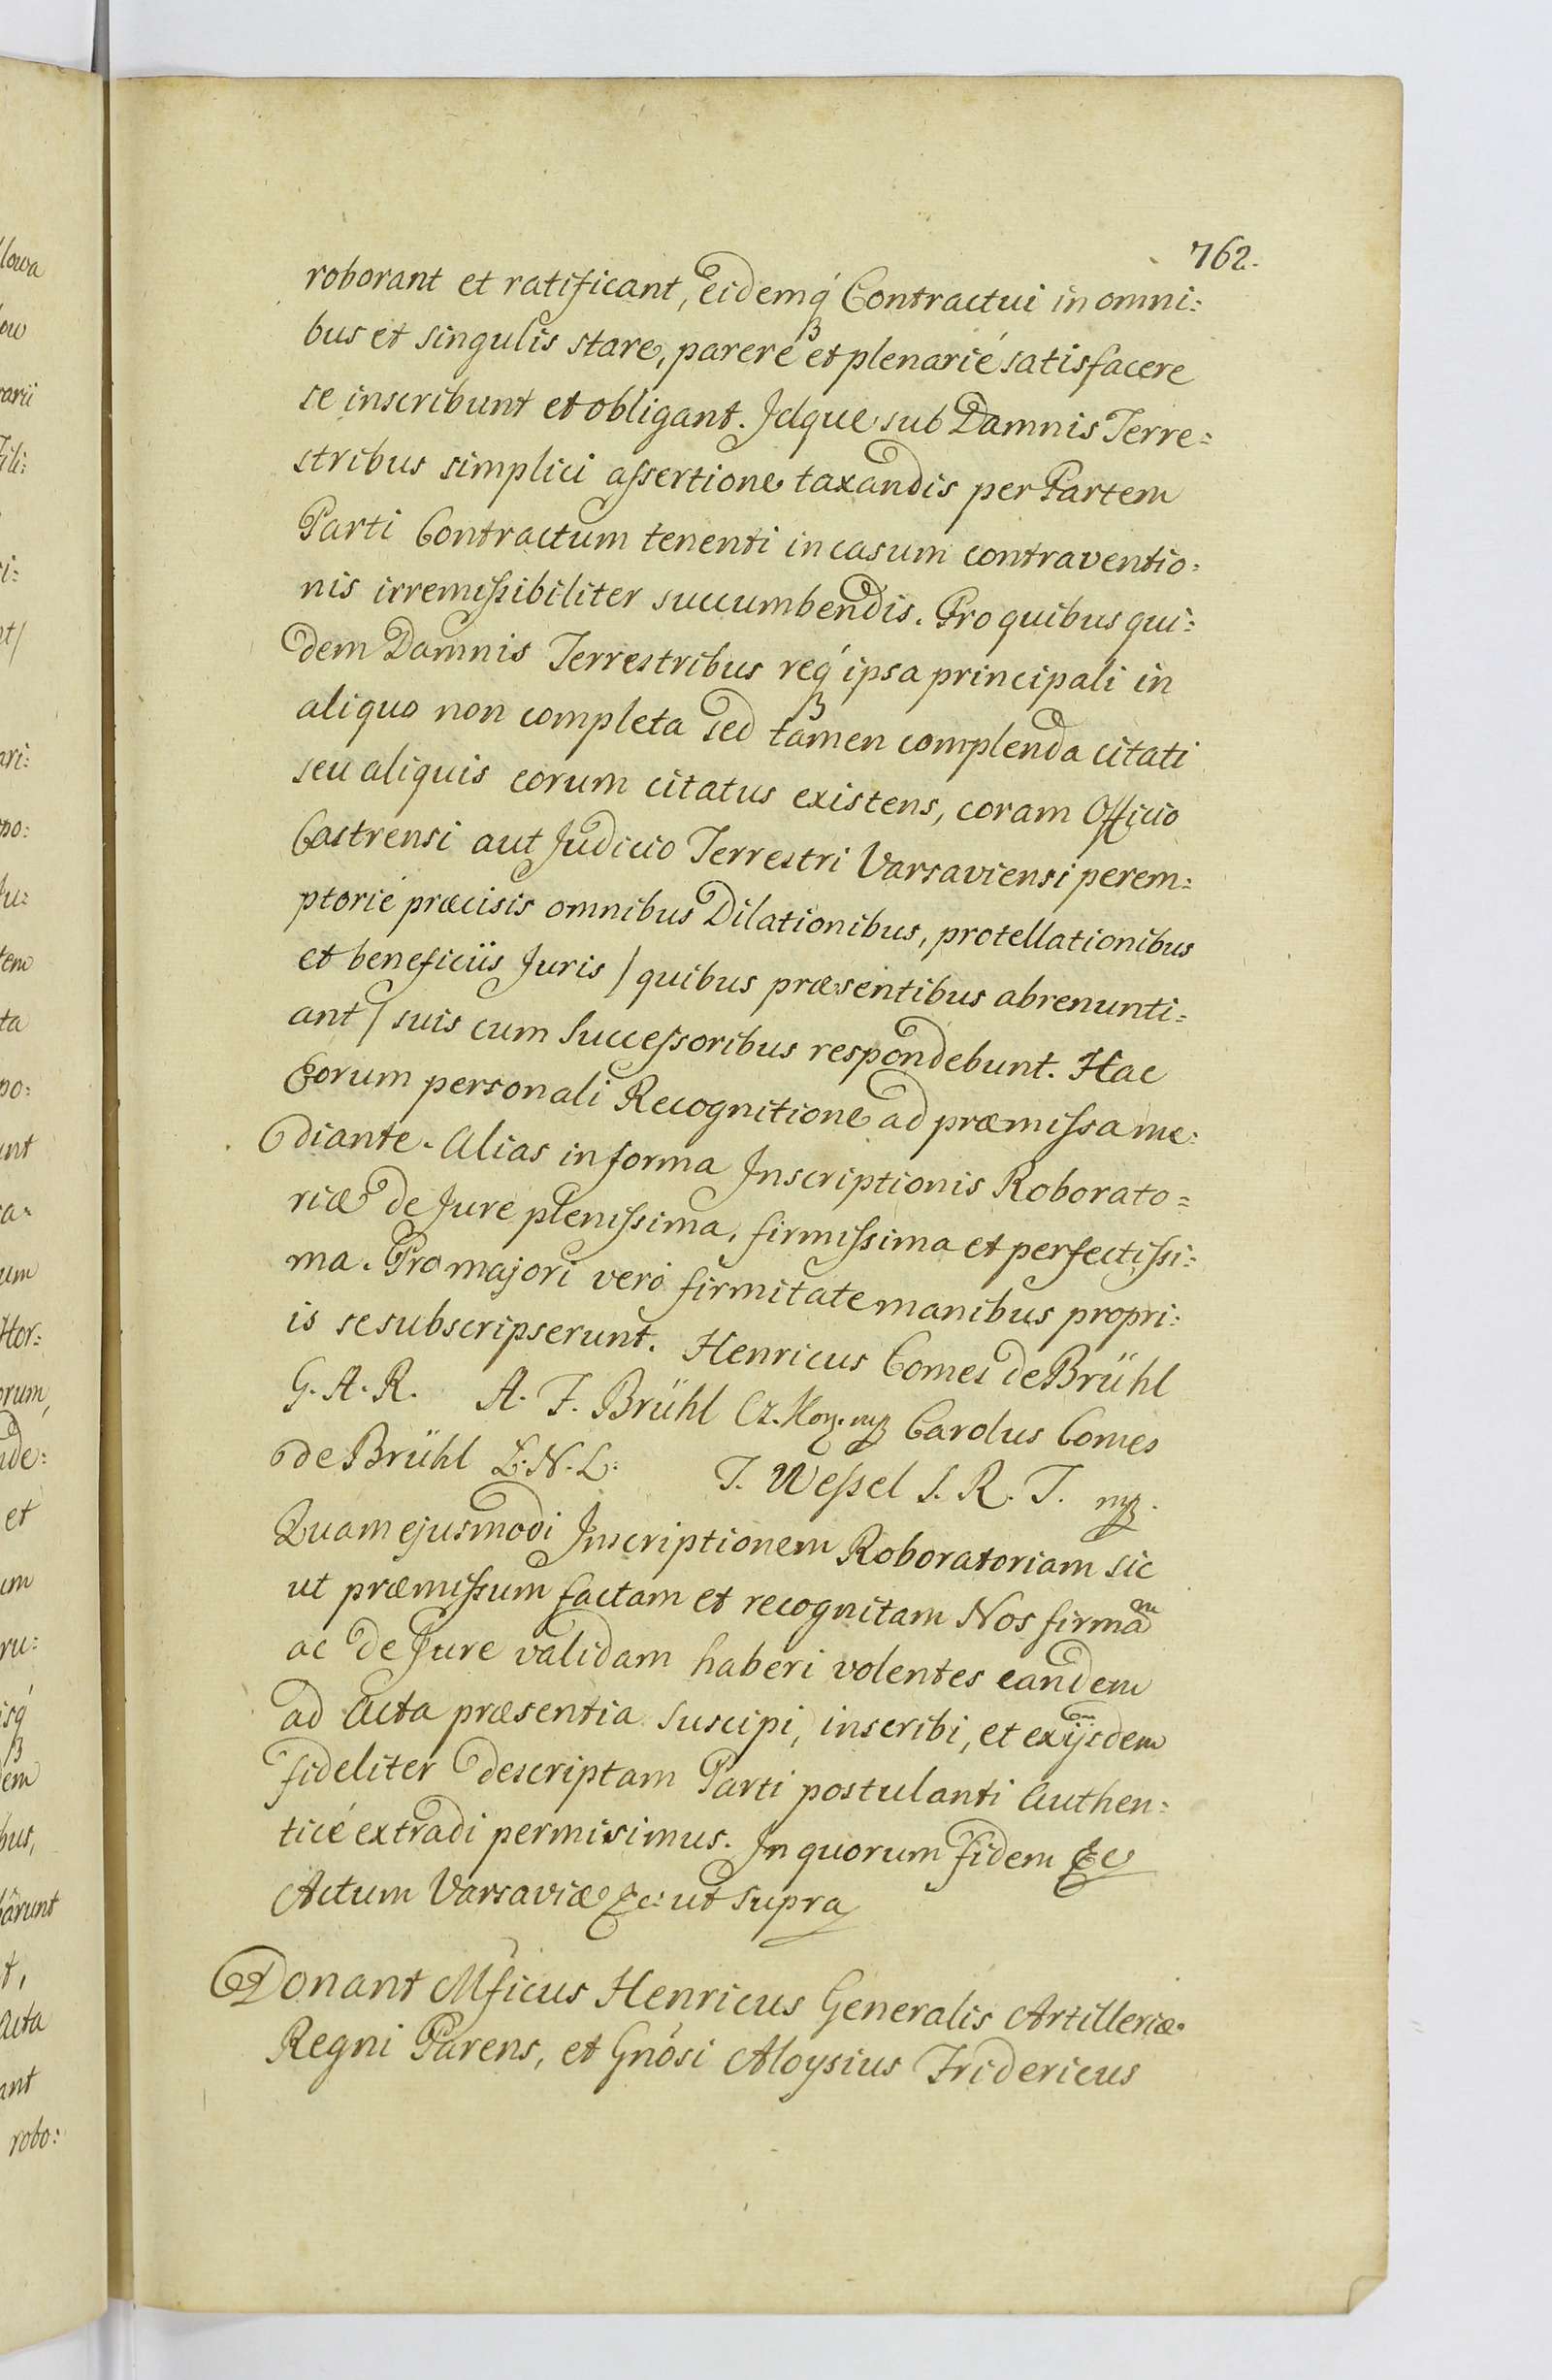 762.
roborant et ratificant, eidemq́ꝫ Contractui in omni:
bus et singulis stare, pareré et plenarié satisfacere
se inscribunt et obligant. Idque sub Damnis Terre=
stribus simplici aſsertione taxandis per Partem
Parti Contractum tenenti in casum contraventio=
nis irremiſsibiliter succumbendis. Pro quibus qui:
dem Damnis Terrestribus req́ꝫ ipsa principali in
aliquo non completa sed tamen complenda citati
seu aliquis eorum citatus existens, coram Officio
Castrensi aut Judicio Terrestri Varsaviensi perem=
ptorié præcisis omnibus Dilationibus, protellationibus
et beneficiis Juris / quibus præsentibus abrenunti=
ant / suis cum Succeſsoribus respondebunt. Hac
Eorum personali Recognitione ad præmiſsa me:
diante. Alias in forma Inscriptionis Roborato=
riæ de Jure pleniſsima, firmiſsima et perfectiſsi:
ma. Pro majori veró firmitate manibus propri:
is se subscripserunt. Henricus Comes de Brühl
G. A. R. A. F. Brühl Cz. Kor. mp Carolus Comes
de Brühl L. N. L. T. Weſsel S. R. T. mp.
Quam ejusmodi Inscriptionem Roboratoriam sic
ut præmiſsum factam et recognitam Nos firmam
ac de Jure validam haberi volentes eandem
ad Acta præsentia suscipi, inscribi, et ex ijsdem
fideliter descriptam Parti postulanti Authen=
ticé extradi permisimus. In quorum fidem &c
Actum Varsaviæ &c: ut supra
Donant Mficus Henricus Generalis Artilleriæ
Regni Parens, et Gnosi Aloysius Fridericus